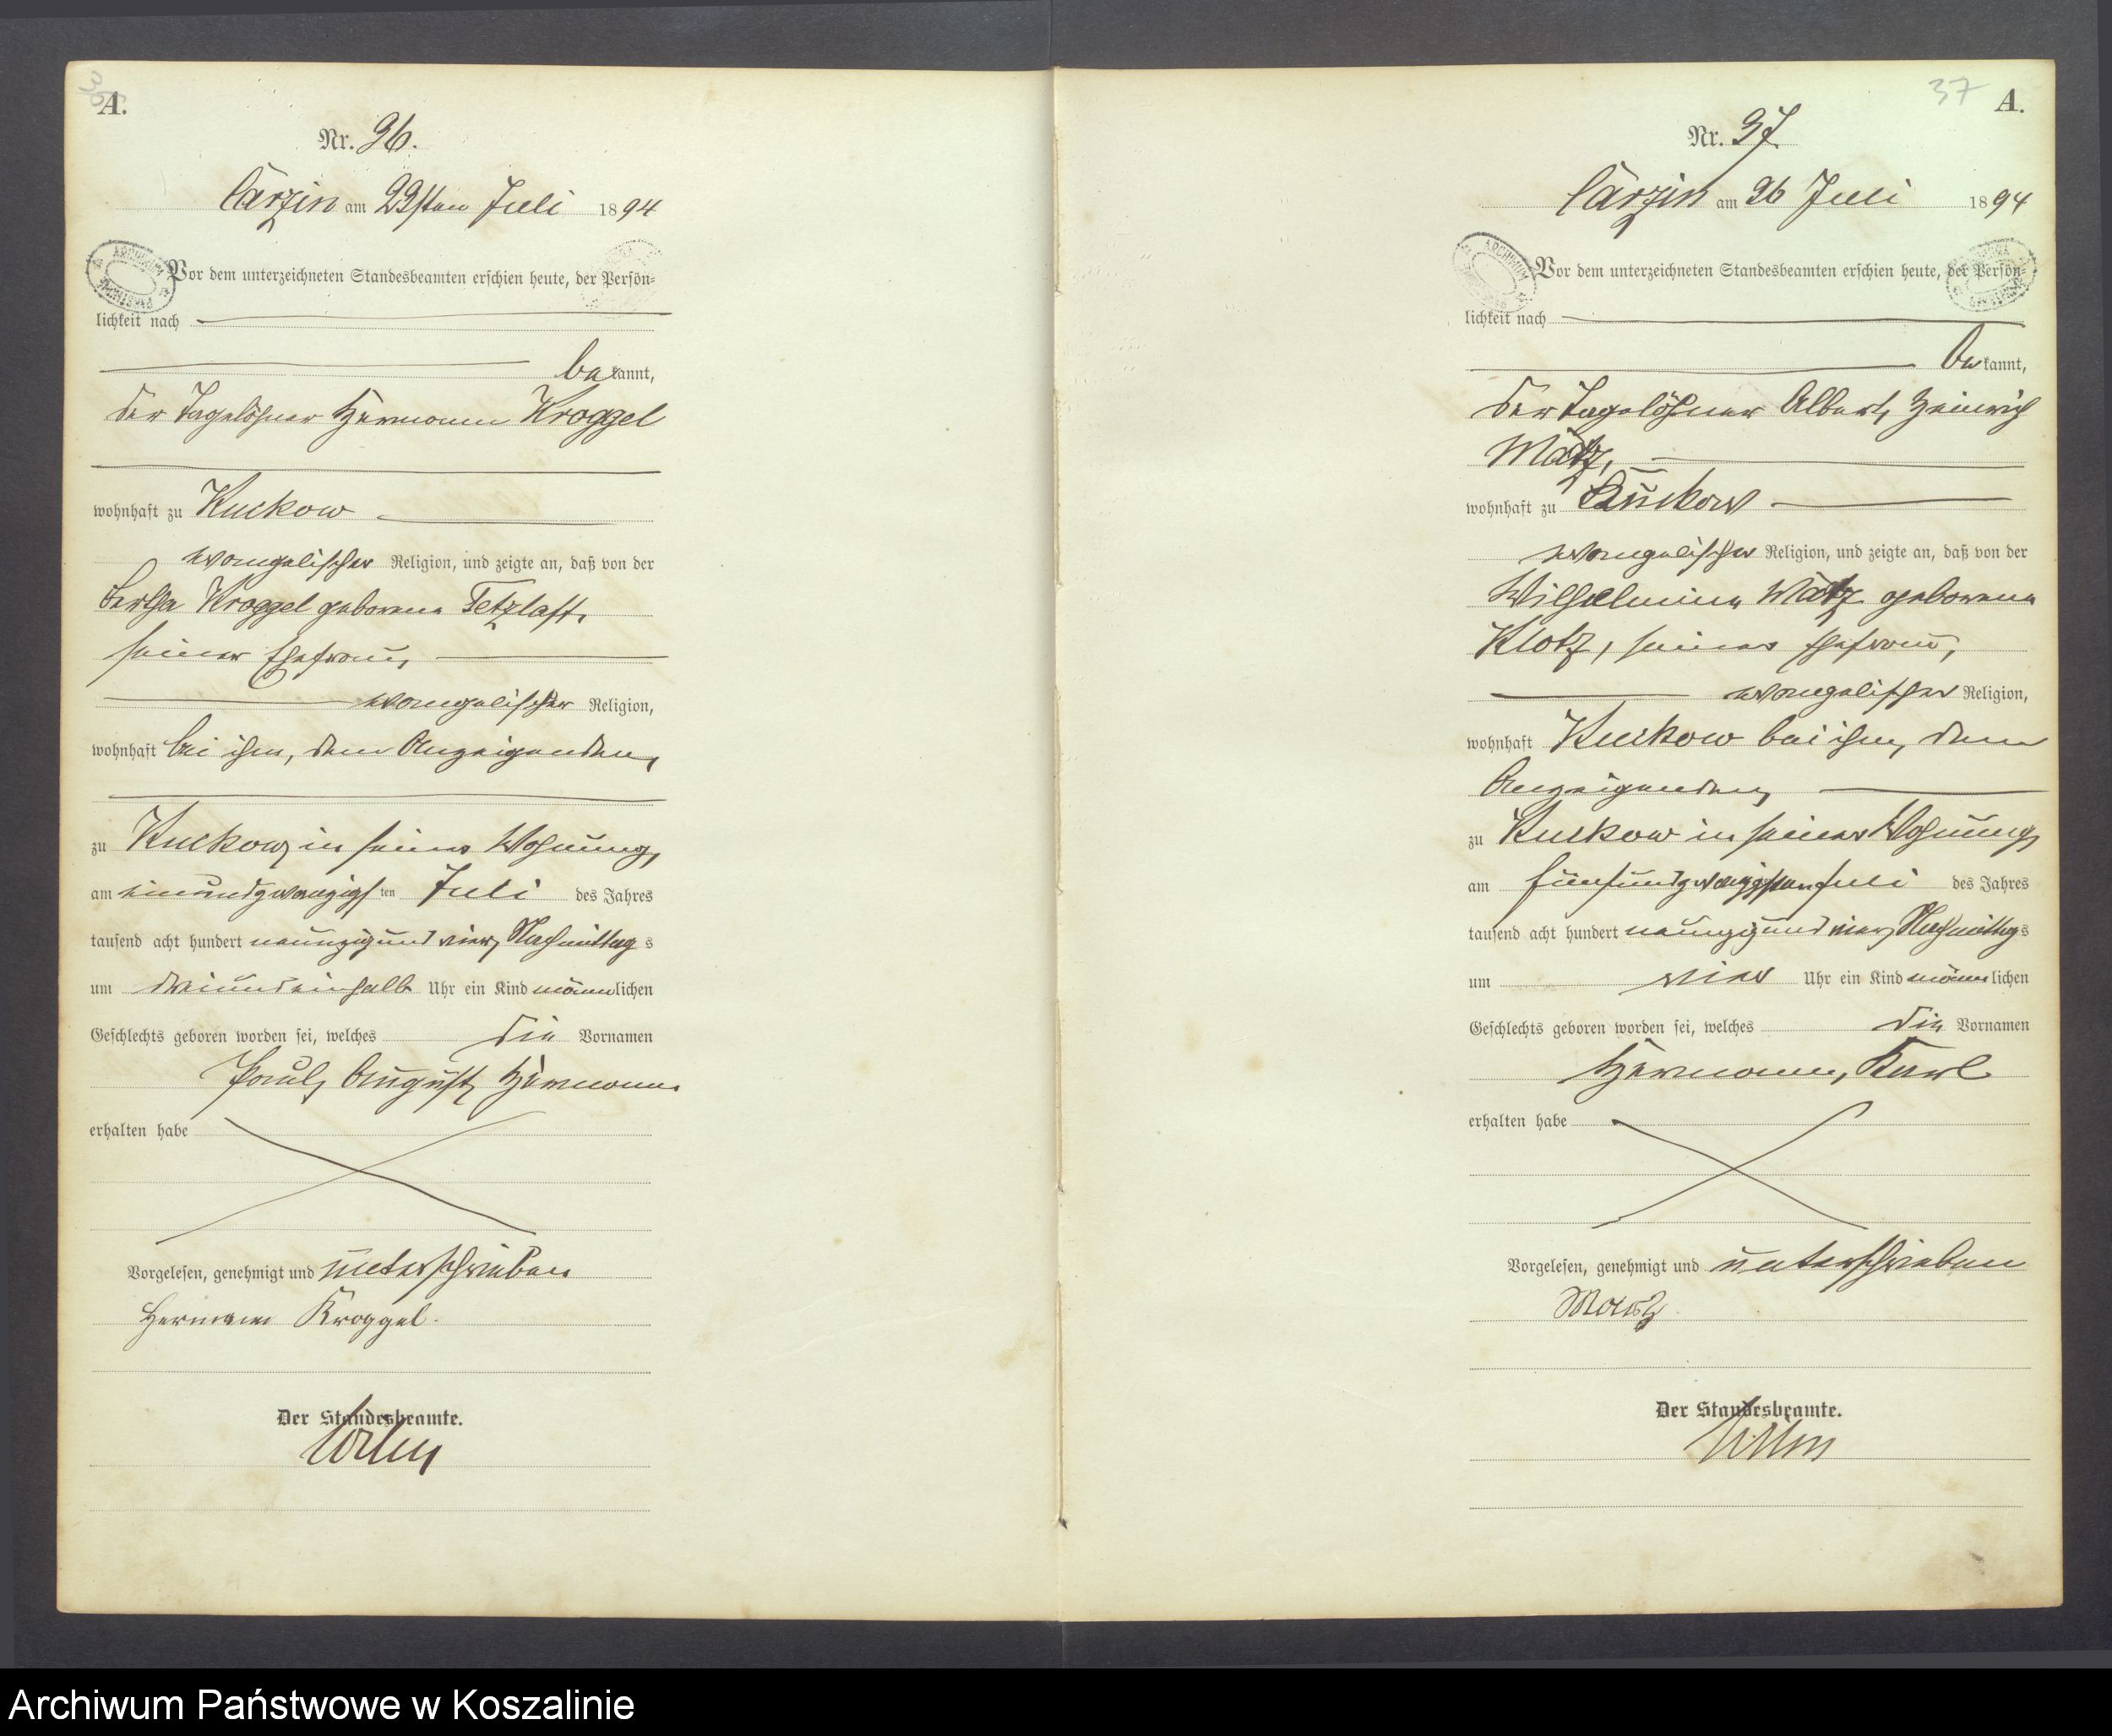 A.
Nr. 36.
Carzin am 23sten Juli 1894
Vor dem unterzeichneten Standesbeamten erschien heute, der Persön-
lichkeit nach
bekannt,
der Tagelöhner Hermann Kroggel
wohnhaft zu Kuckow
evangelischer Religion, und zeigte an, daß von der
Bertha Kroggel geborene Tetzlaff,
seiner Ehefrau,
evangelischer Religion,
wohnhaft bei ihm, dem Anzeigenden,
zu Kuckow, in seiner Wohnung,
am einundzwanzigsten Juli des Jahres
tausend acht hundert neunzig und vier, Nachmittags
um drei und einhalb Uhr ein Kind männlichen
Geschlechts geboren worden sei, welches die Vornamen
Paul, August, Hermann
erhalten habe
Vorgelesen, genehmigt und unterschrieben
Hermann Kroggel.
Der Standesbeamte.
37 A.
Nr. 37
Carzin am 26 Juli 1894
Vor dem unterzeichneten Standesbeamten erschien heute, der Persön-
lichkeit nach
bekannt,
der Tagelöhner Albert, Heinrich
Matz,
wohnhaft zu Kuckow
evangelischer Religion, und zeigte an, daß von der
Wilhelmine Matz geborene
Klotz, seiner Ehefrau,
evangelischer Religion,
wohnhaft Kuckow bei ihm, dem
Anzeigenden,
zu Kuckow in seiner Wohnung,
am fünfundzwanzigsten Juli des Jahres
tausend acht hundert neunzig und vier, Nachmittags
um vier Uhr ein Kind männlichen
Geschlechts geboren worden sei, welches die Vornamen
Hermann, Karl
erhalten habe
Vorgelesen, genehmigt und unterschrieben
Der Standesbeamte.
Archiwum Państwowe w Koszalinie